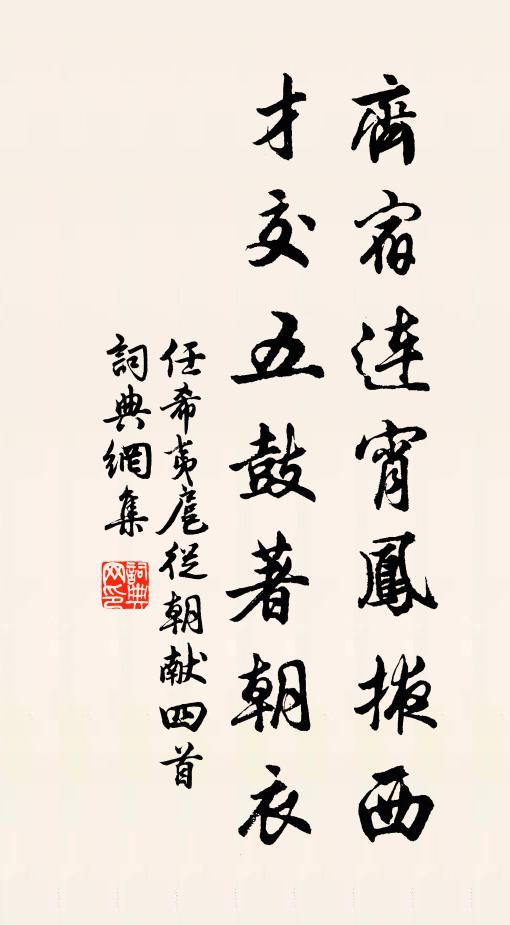 齊宿連宵鳳掖西
才交五鼓著朝衣
任希夷扈從朝献四首
詞典網集
詞典网印